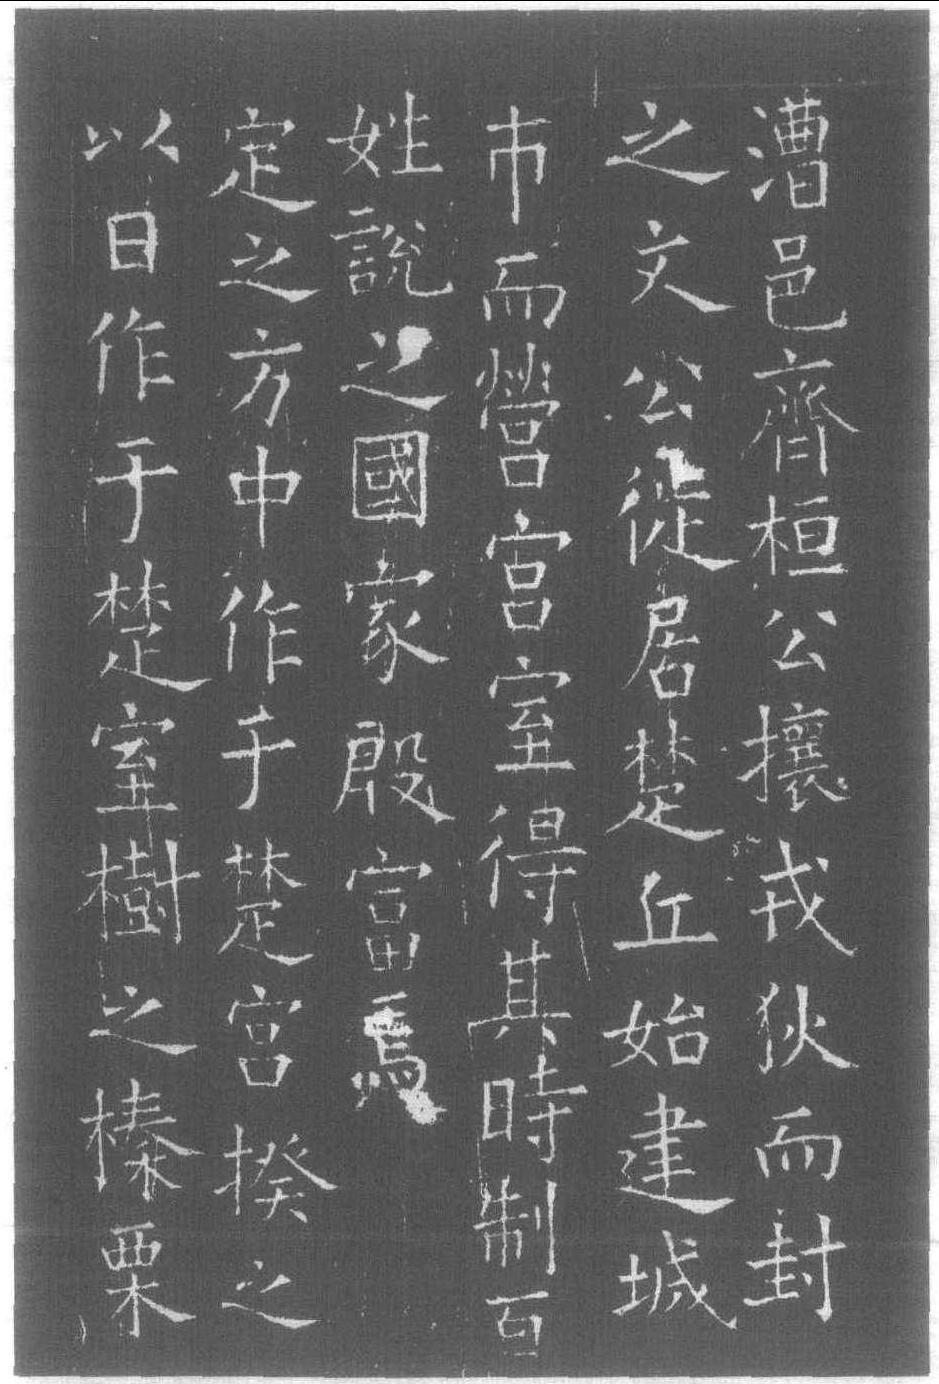 漕邑齊桓公攘戎狄而封
之文公徙居楚丘始建城
市而營宮室得其時制百
姓說之國家殷富焉
定之方中作于楚宮揆之
以日作于楚室樹之榛栗